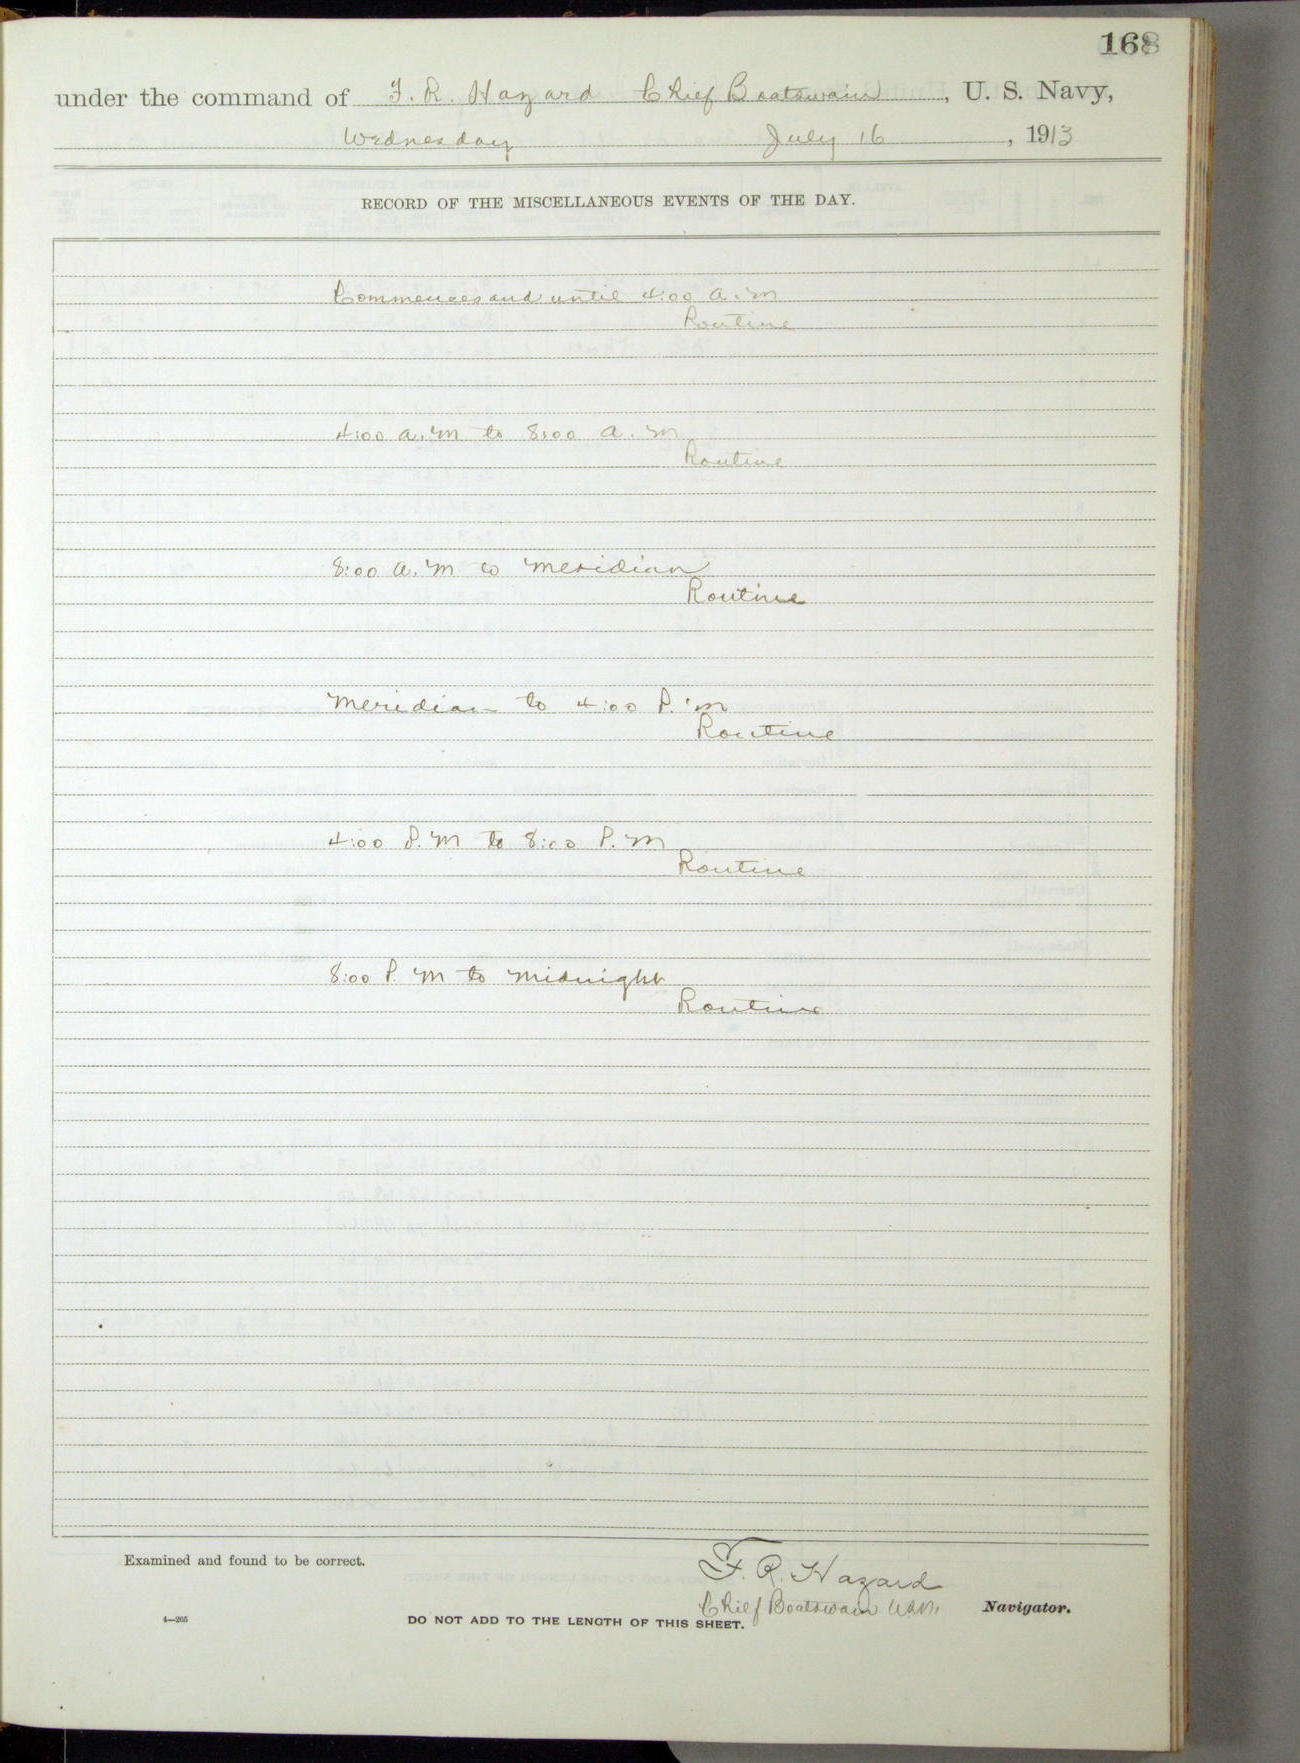 168
under the command of F. R. Hazard Chief Boatswain, U. S. Navy,
Wednesday July 16, 1913
RECORD OF THE MISCELLANEOUS EVENTS OF THE DAY.
Commences and until 4:00 a.m
Routine
4:00 a.m to 8:00 a.m
Routine
8:00 a.m to meridian
Routine
Meridian to 4:00 P.m
Routine
4:00 P.M to 8:00 P.M
Routine
8:00 P.M to Midnight
Routine
Examined and found to be correct.
F. R. Hazard
Chief Boatswain U.S.N. Navigator.
4—265
DO NOT ADD TO THE LENGTH OF THIS SHEET.